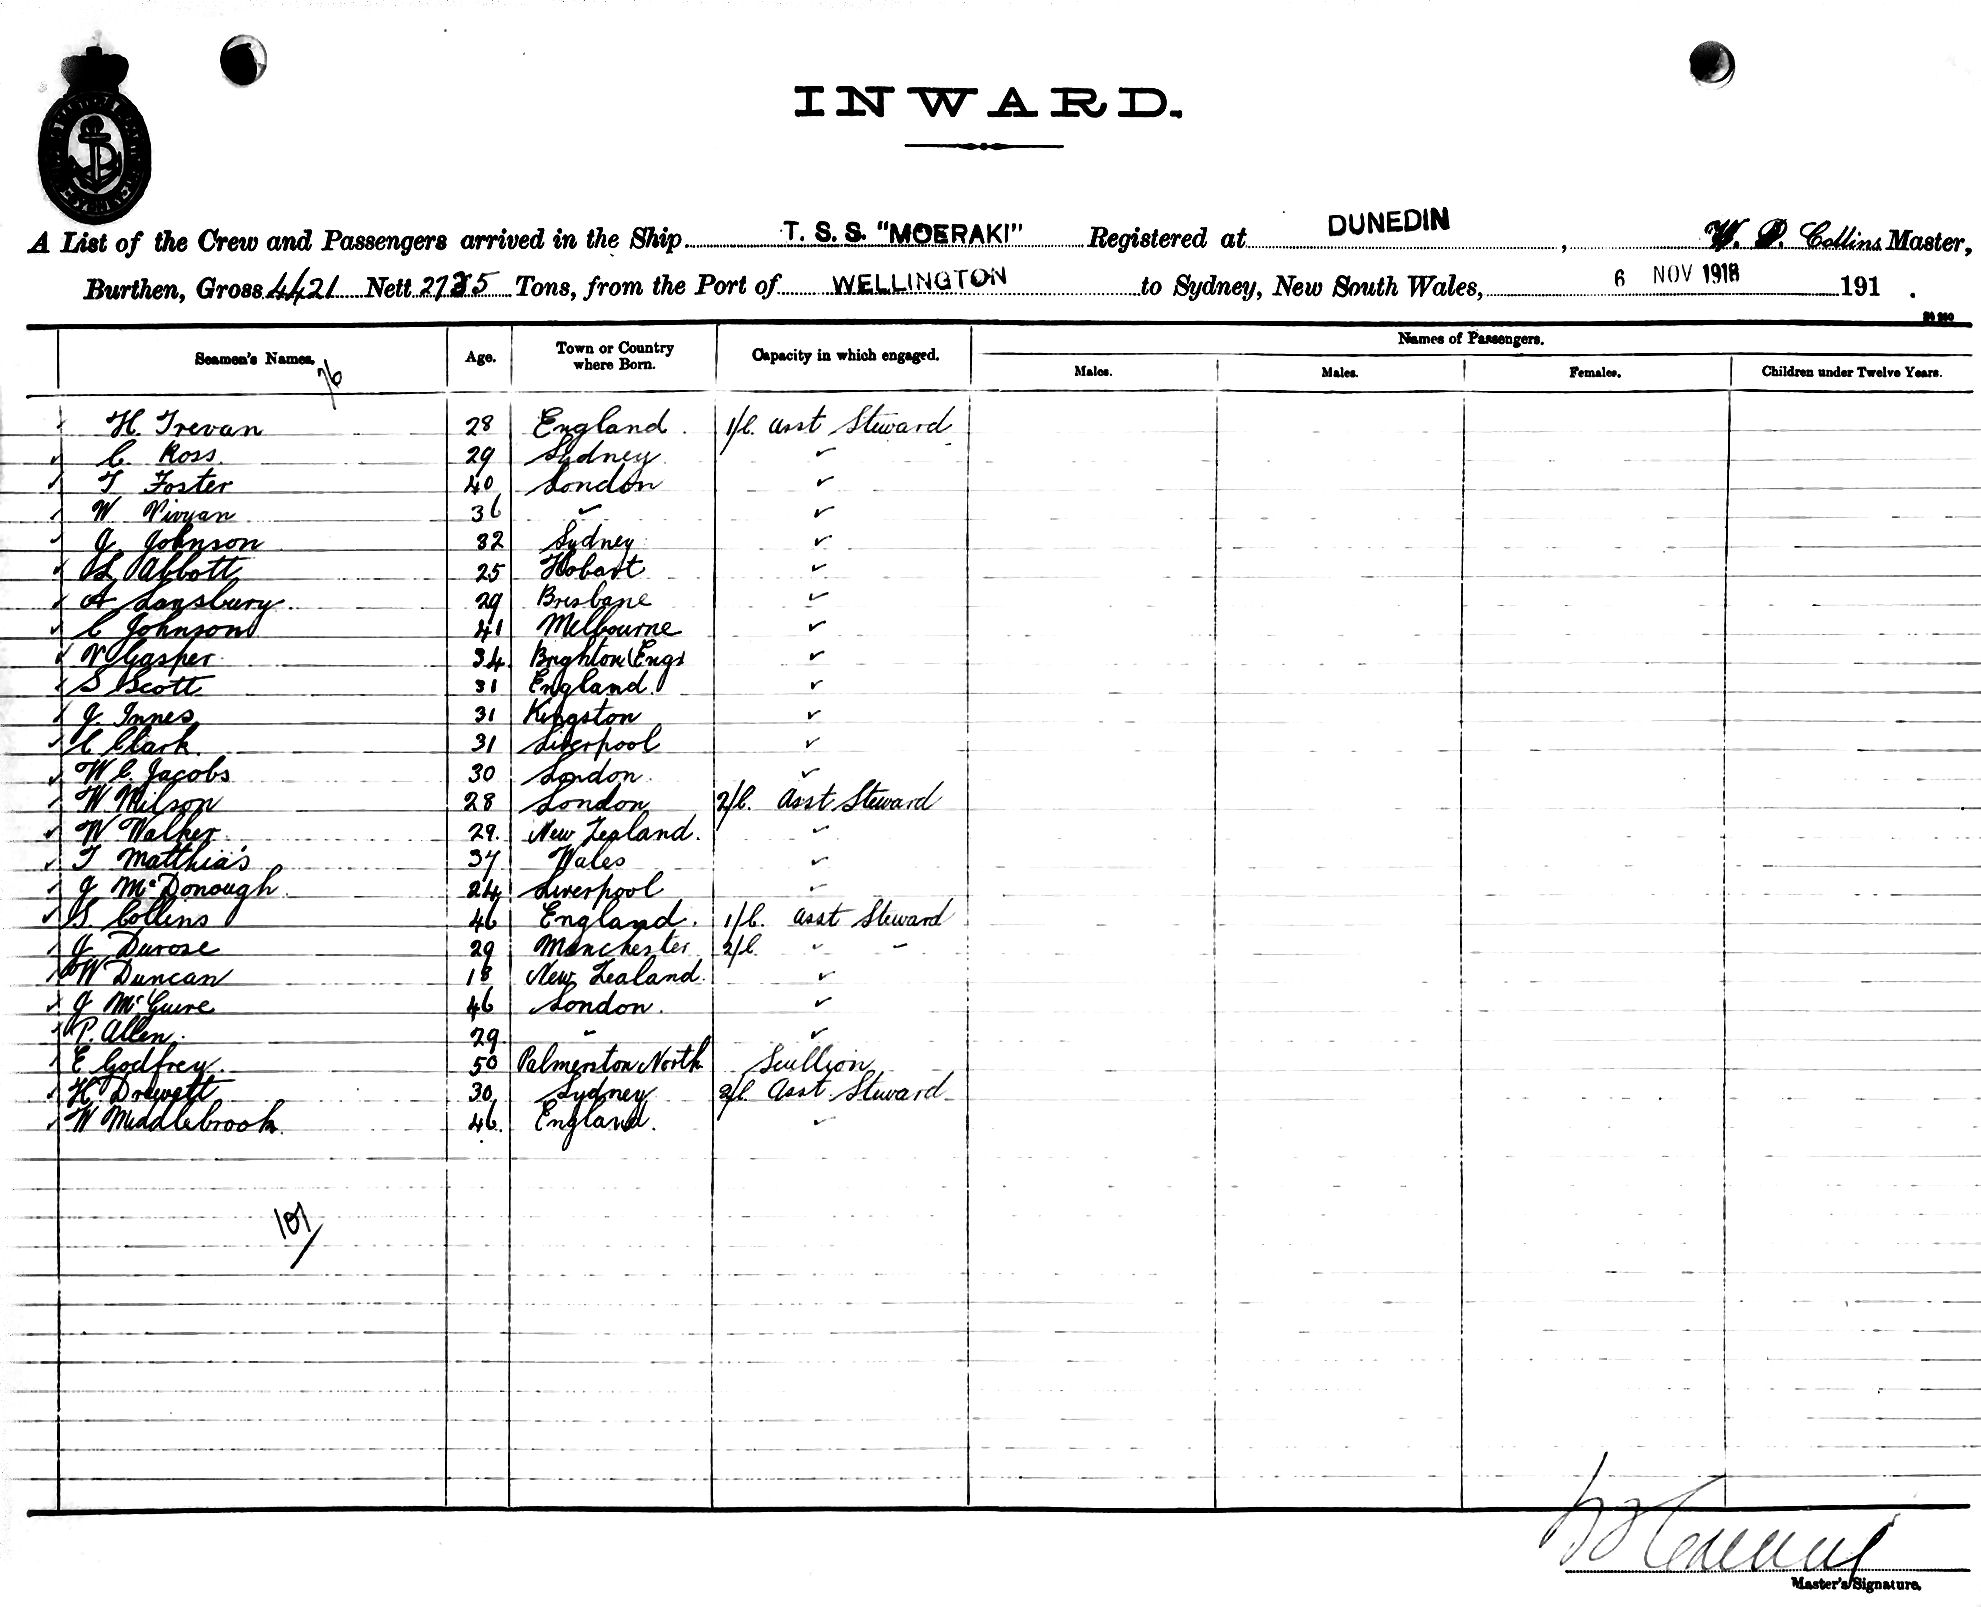 INWARD.
A List of the Crew and Passengers arrived in the Ship T. S. S. "MOERAKI" Registered at DUNEDIN, W. D. Collins Master,
Burthen, Gross 4421 Nett 2735 Tons, from the Port of WELLINGTON to Sydney, New South Wales, 6 NOV 1918 191 .
Names of Passengers.
Seamen's Names. Age. Town or Country where Born. Capacity in which engaged. Males. Males. Females. Children under Twelve Years.
76
H. Trevan 28 England. 1/C. Asst Steward
C. Ross. 29 Sydney "
T Foster 40 London "
W Vivyan 36 " "
J Johnson 32 Sydney "
L Abbott 25 Hobart "
A Lansbury 29 Brisbane "
C Johnson 41 Melbourne "
V Gasper 34 Brighton (Eng) "
S Scott 31 England. "
J. Innes 31 Kingston "
C Clark. 31 Liverpool "
W C. Jacobs 30 London. "
W Wilson 28 London 2/C. Asst Steward
W Walker 29. New Zealand. "
T Matthia's 37 Wales "
J McDonough 24 Liverpool "
S. Collins 46 England. 1/C. Asst Steward
J Durose 29 Manchester 2/C. " "
W Duncan 18 New Zealand. "
J McGuire 46 London. "
P. Allen. 29 " "
E Godfrey. 50 Palmerston North Scullion
H. Drewett 30 Sydney 2/C. Asst Steward
W Middlebrook. 46. England. "
101
Master's Signature.